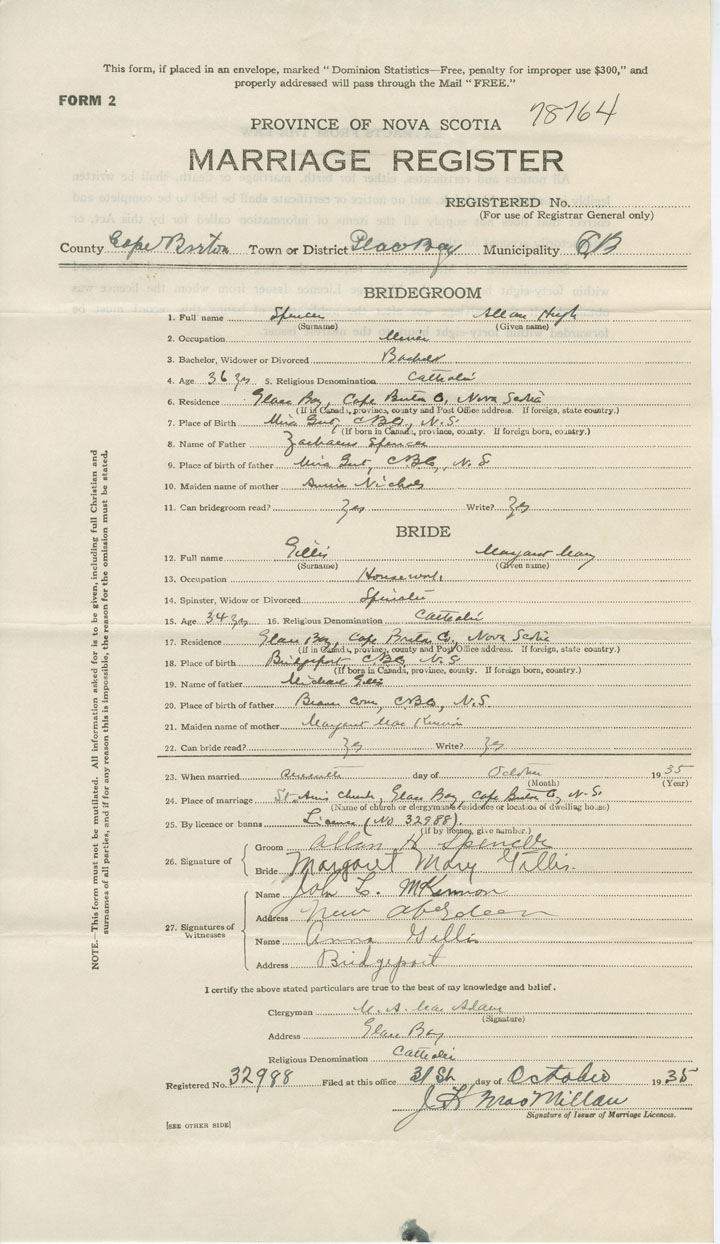 This form, if placed in an envelope, marked "Dominion Statistics—Free, penalty for improper use $300," and
properly addressed will pass through the Mail "FREE."
FORM 2
78764
PROVINCE OF NOVA SCOTIA
MARRIAGE REGISTER
REGISTERED No.
(For use of Registrar General only)
County Cape Breton Town or District Glace Bay Municipality CB
BRIDEGROOM
1. Full name Spencer Allan Hugh
(Surname) (Given name)
2. Occupation Miner
3. Bachelor, Widower or Divorced Bachelor
4. Age 36 yrs 5. Religious Denomination Catholic
6. Residence Glace Bay, Cape Breton Co, Nova Scotia
(If in Canada, province, county and Post Office address. If foreign, state country.)
7. Place of Birth Mira Gut, CBCo, N.S.
(If born in Canada, province, county. If foreign born, country.)
8. Name of Father Zacharus Spencer
9. Place of birth of father Mira Gut, CBCo, N.S
10. Maiden name of mother Annie Nichols
11. Can bridegroom read? Yes Write? Yes
BRIDE
12. Full name Gillis Margaret Mary
(Surname) (Given name)
13. Occupation Housework
14. Spinster, Widow or Divorced Spinster
15. Age 34 yrs 16. Religious Denomination Catholic
17. Residence Glace Bay, Cape Breton Co, Nova Scotia
(If in Canada, province, county and Post Office address. If foreign, state country.)
18. Place of birth Bridgeport, CBCo, N.S
(If born in Canada, province, county. If foreign born, country.)
19. Name of father Michael Gillis
20. Place of birth of father Beaver Cove, CBCo, N.S.
21. Maiden name of mother Margaret Mac Kinnon
22. Can bride read? Yes Write? Yes
23. When married day of October 1935
(Month) (Year)
24. Place of marriage St. Ann's Church, Glace Bay, Cape Breton Co, N.S.
(Name of church or clergyman's residence or location of dwelling house)
25. By licence or banns Licence (No 32988).
(If by licence, give number.)
26. Signature of
Groom Allan H Spencer
Bride Margaret Mary Gillis.
27. Signatures of Witnesses
Name John L. McKinnon
Address New Aberdeen
Name Anna Gillis
Address Bridgeport
I certify the above stated particulars are true to the best of my knowledge and belief.
Clergyman M. A. Mac Adam
(Signature)
Address Glace Bay
Religious Denomination Catholic
Registered No. 32988 Filed at this office 31st day of October 1935
J H MacMillan
Signature of Issuer of Marriage Licences.
[SEE OTHER SIDE]
NOTE.—This form must not be mutilated. All information asked for is to be given, including full Christian and
surnames of all parties, and if for any reason this is impossible, the reason for the omission must be stated.